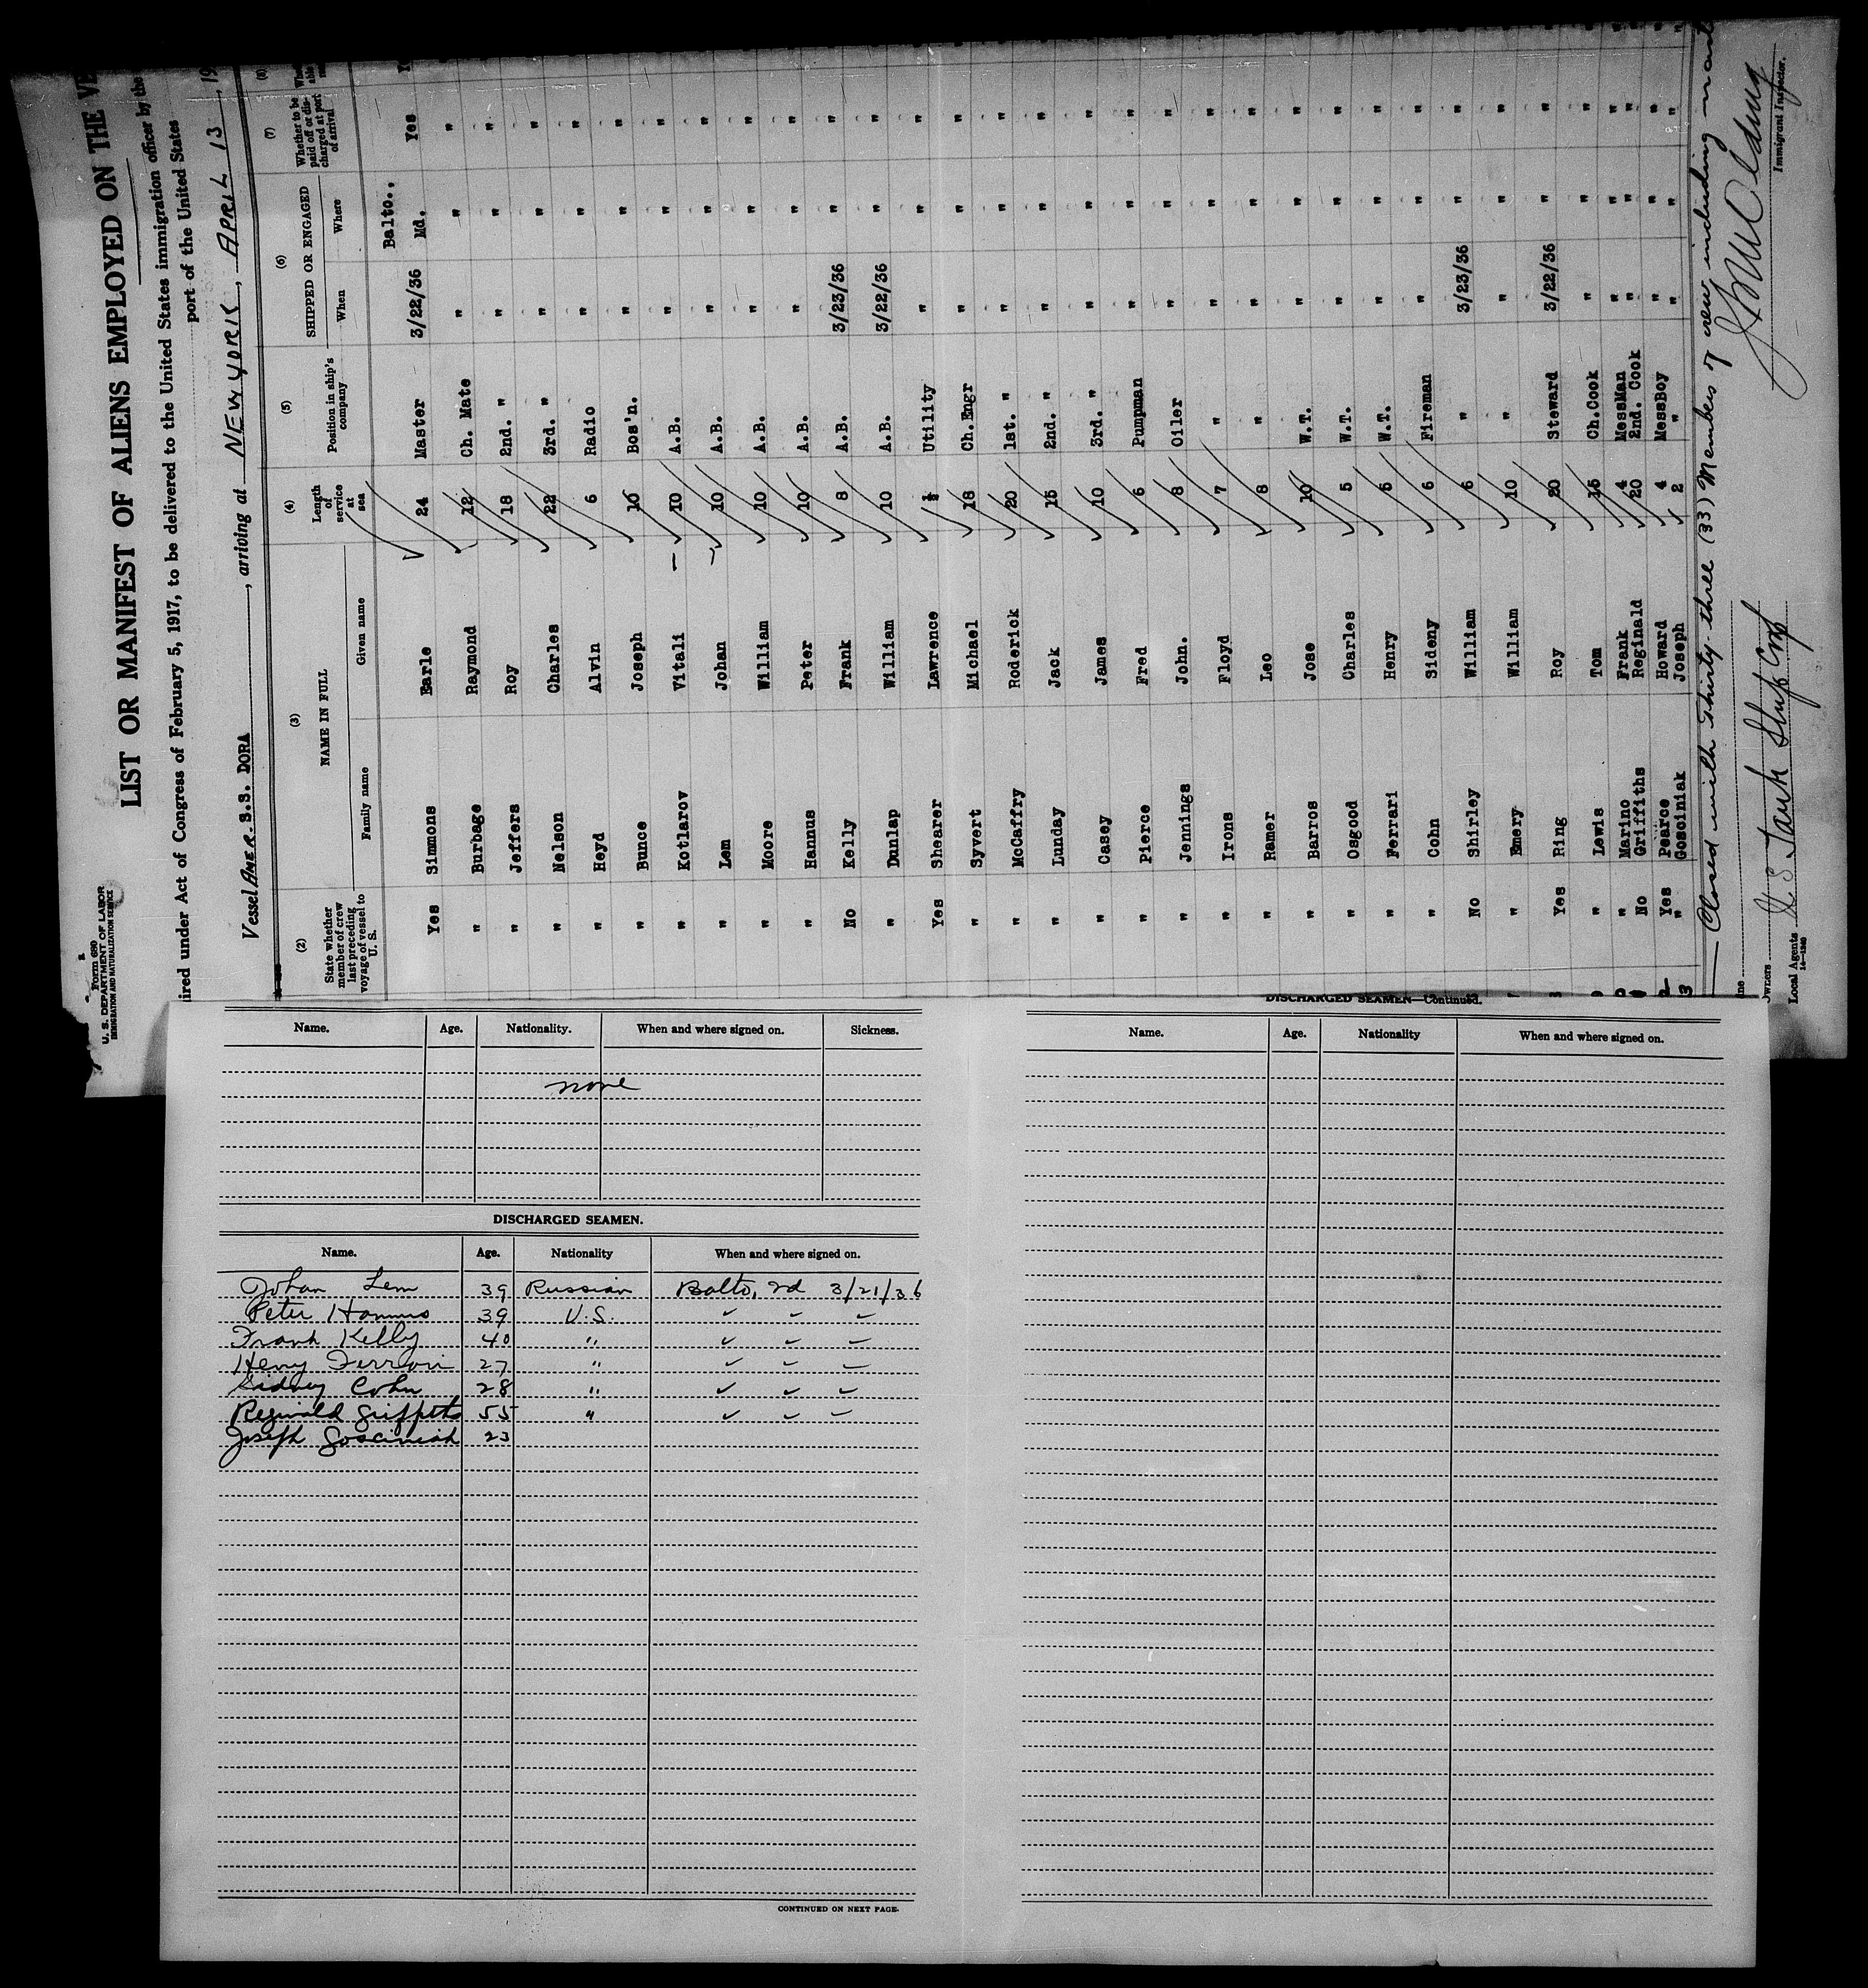 Form 680
U. S. DEPARTMENT OF LABOR
IMMIGRATION AND NATURALIZATION SERVICE
LIST OR MANIFEST OF ALIENS EMPLOYED ON THE VE
ired under Act of Congress of February 5, 1917, to be delivered to the United States immigration officer by the
port of the United States
Vessel AMER. S.S. DORA, arriving at NEW YORK, APRIL 13, 19
(2) (3) (4) (5) (6) (7) (8)
State whether member of crew last preceding voyage of vessel to U. S. NAME IN FULL Family name Given name Length of service at sea Position in ship's company SHIPPED OR ENGAGED When Where Whether to be paid off or discharged at port of arrival
Yes Simmons Earle 24 Master 3/22/36 Balto., Md. Yes
" Burbage Raymond 12 Ch. Mate " " "
" Jeffers Roy 18 2nd. " " " "
" Nelson Charles 22 3rd. " " " "
" Heyd Alvin 6 Radio " " "
" Bunce Joseph 10 Bos'n. " " "
" Kotlarov Vitali 10 A.B. " " "
" Lem Johan 10 A.B. " " "
" Moore William 10 A.B. " " "
" Hannus Peter 10 A.B. " " "
No Kelly Frank 8 A.B. 3/23/36 " "
" Dunlap William 10 A.B. 3/22/36 " "
Yes Shearer Lawrence ½ Utility " " "
" Syvert Michael 18 Ch.Engr " " "
" McCaffry Roderick 20 1st. " " " "
" Lunday Jack 15 2nd. " " " "
" Casey James 10 3rd. " " " "
" Pierce Fred 6 Pumpman " " "
" Jennings John. 8 Oiler " " "
" Irons Floyd 7 " " " "
" Ramer Leo 8 " " " "
" Barros Jose 10 W.T. " " "
" Osgood Charles 5 W.T. " " "
" Ferrari Henry 5 W.T. " " "
" Cohn Sideny 6 Fireman " " "
No Shirley William 6 " 3/23/36 " "
" Emery William 10 " " " "
Yes Ring Roy 20 Steward 3/22/36 " "
" Lewis Tom 15 Ch.Cook " " "
" Marino Frank 4 MessMan " " "
No Griffiths Reginald 20 2nd. Cook " " "
Yes Pearce Howard 4 MessBoy " " "
" Gosciniak Joseph 2 " " " "
Closed with Thirty-three (33) Members of crew including
Owners
Local Agents U S Tank Ship Corp
14-1240
Immigrant Inspector.
Name. Age. Nationality. When and where signed on. Sickness.
none
DISCHARGED SEAMEN.
Name. Age. Nationality When and where signed on.
Johan Lem 39 Russian Balto, Md 3/21/36
Peter Hannus 39 U.S. " " "
Frank Kelly 40 " " " "
Henry Ferrari 27 " " " "
Sidney Cohn 28 " " " "
Reginald Griffiths 55 " " " "
Joseph Gosciniak 23
CONTINUED ON NEXT PAGE.
DISCHARGED SEAMEN—Continued.
Name. Age. Nationality When and where signed on.